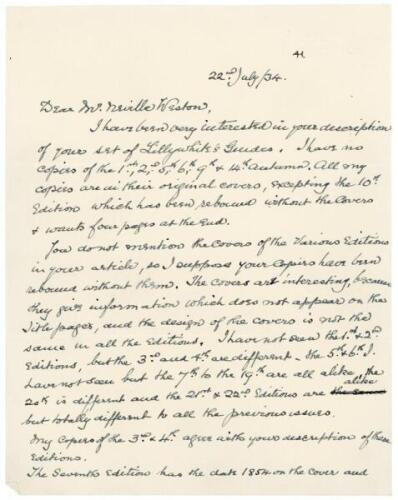 41
22nd July/34.
Dear Mr. Neville Weston,
I have been very interested in your description
of your set of Lillywhite's Guides. I have no
copies of the 1st, 2nd, 5th, 6th, 9th & 4th autumn. All my
copies are in their original covers, excepting the 10th
Edition which has been rebound without the covers
& wants four pages at the end.
You do not mention the covers of the various Editions
in your article, so I suppose your copies have been
rebound without them. The covers are interesting, because
they give information which does not appear on the
Title pages, and the design of the covers is not the
same in all the Editions. I have not seen the 1st & 2nd
Editions, but the 3rd and 4th are different – the 5th & 6th I
have not seen but the 7th to the 19th are all alike, the
20th is different and the 21st & 22nd Editions are alike
but totally different to all the previous issues.
My copies of the 3rd & 4th agree with your description of these
Editions.
The Seventh Edition has the date 1854 on the cover and